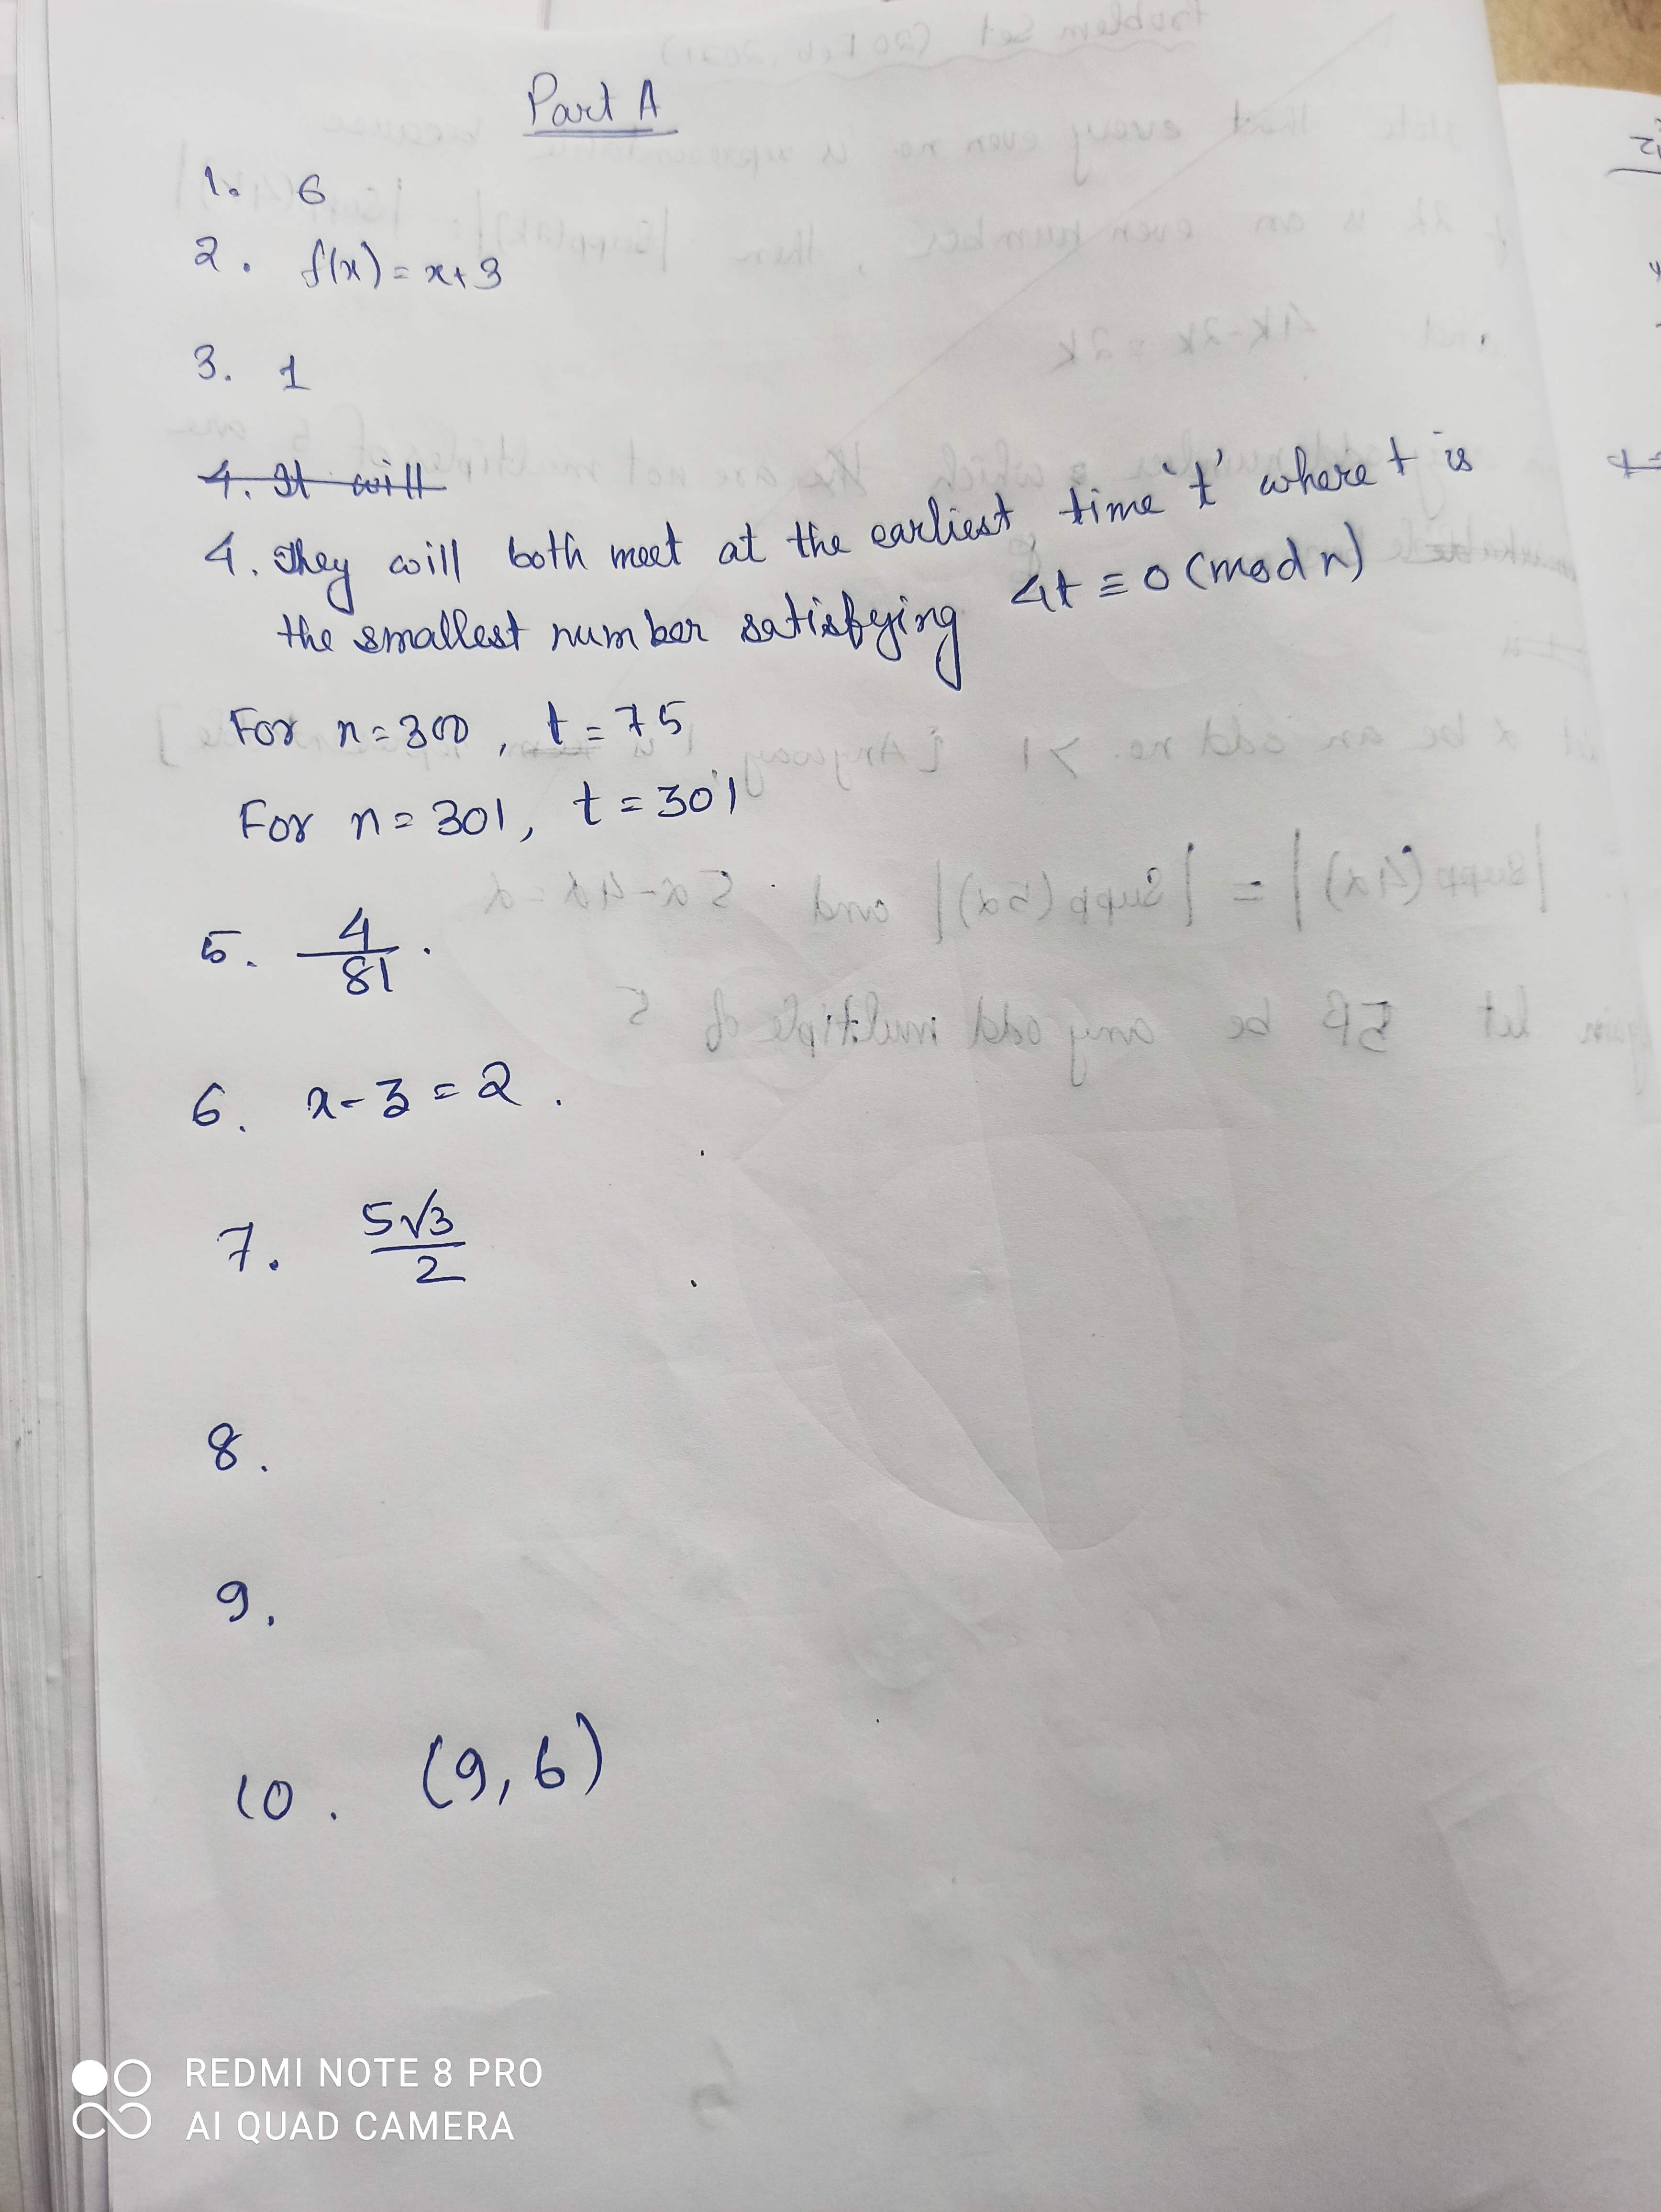 Part A
1. 6
2. f(x) = x+3
3. 1
4. It will
4. They will both meet at the earliest time 't' where t is
the smallest number satisfying 4t ≡ 0 (mod n)
For n = 300, t = 75
For n = 301, t = 301
5. 4/81.
6. x - 3 = 2.
7. 5√3/2
8.
9.
10. (9, 6)
REDMI NOTE 8 PRO
AI QUAD CAMERA